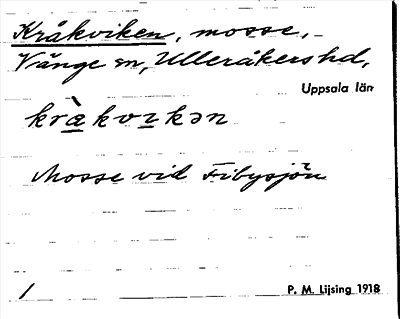 Kråkviken, mosse,
Vänge sn, Ulleråkers hd,
Uppsala län
krὰkvɪkən
Mosse vid Fibysjön
1
P. M. Lijsing 1918